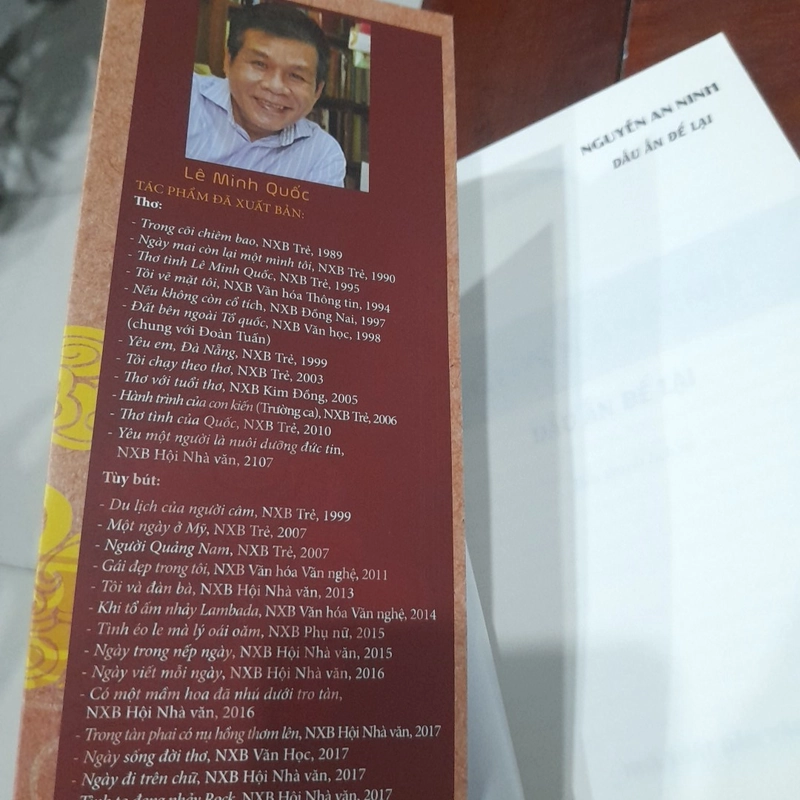 Lê Minh Quốc
TÁC PHẨM ĐÃ XUẤT BẢN:
Thơ:
- Trong cõi chiêm bao, NXB Trẻ, 1989
- Ngày mai còn lại một mình tôi, NXB Trẻ, 1990
- Thơ tình Lê Minh Quốc, NXB Trẻ, 1995
- Tôi vẽ mặt tôi, NXB Văn hóa Thông tin, 1994
- Nếu không còn cổ tích, NXB Đồng Nai, 1997
- Đất bên ngoài Tổ quốc, NXB Văn học, 1998
(chung với Đoàn Tuấn)
- Yêu em, Đà Nẵng, NXB Trẻ, 1999
- Tôi chạy theo thơ, NXB Trẻ, 2003
- Thơ với tuổi thơ, NXB Kim Đồng, 2005
- Hành trình của con kiến (Trường ca), NXB Trẻ, 2006
- Thơ tình của Quốc, NXB Trẻ, 2010
- Yêu một người là nuôi dưỡng đức tin,
NXB Hội Nhà văn, 2107
Tùy bút:
- Du lịch của người câm, NXB Trẻ, 1999
- Một ngày ở Mỹ, NXB Trẻ, 2007
- Người Quảng Nam, NXB Trẻ, 2007
- Gái đẹp trong tôi, NXB Văn hóa Văn nghệ, 2011
- Tôi và đàn bà, NXB Hội Nhà văn, 2013
- Khi tổ ấm nhảy Lambada, NXB Văn hóa Văn nghệ, 2014
- Tình éo le mà lý oái oăm, NXB Phụ nữ, 2015
- Ngày trong nếp ngày, NXB Hội Nhà văn, 2015
- Ngày viết mỗi ngày, NXB Hội Nhà văn, 2016
- Có một mầm hoa đã nhú dưới tro tàn,
NXB Hội Nhà văn, 2016
- Trong tàn phai có nụ hồng thơm lên, NXB Hội Nhà văn, 2017
- Ngày sống đời thơ, NXB Văn Học, 2017
- Ngày đi trên chữ, NXB Hội Nhà văn, 2017
- Tình ta đang nhảy Rock, NXB Hội Nhà văn, 2017
NGUYỄN AN NINH
DẤU ẤN ĐỂ LẠI
DẤU ẤN ĐỂ LẠI